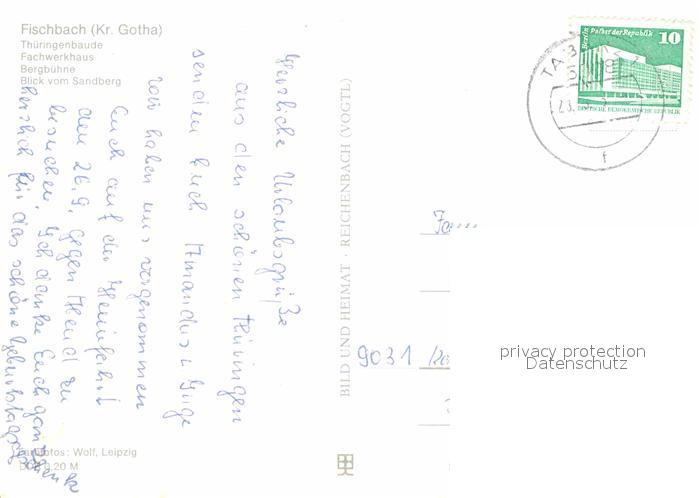 Fischbach (Kr. Gotha)
Thüringenbaude
Fachwerkhaus
Bergbühne
Blick vom Sandberg
Herzliche Urlaubsgrüße
aus den schönen Thüringen
senden Euch Amandus u.
wir haben uns vorgenommen
Euch auf der Heimfahrt
den 26.9. gegen Abend zu
besuchen. Ich danke Euch ganz
herzlich für das schöne
Farbfotos: Wolf, Leipzig
0,20 M
BILD UND HEIMAT · REICHENBACH (VOGTL)
Berlin Palast der Republik
10
DEUTSCHE DEMOKRATISCHE REPUBLIK
TABARZ
f
9031
privacy protection
Datenschutz